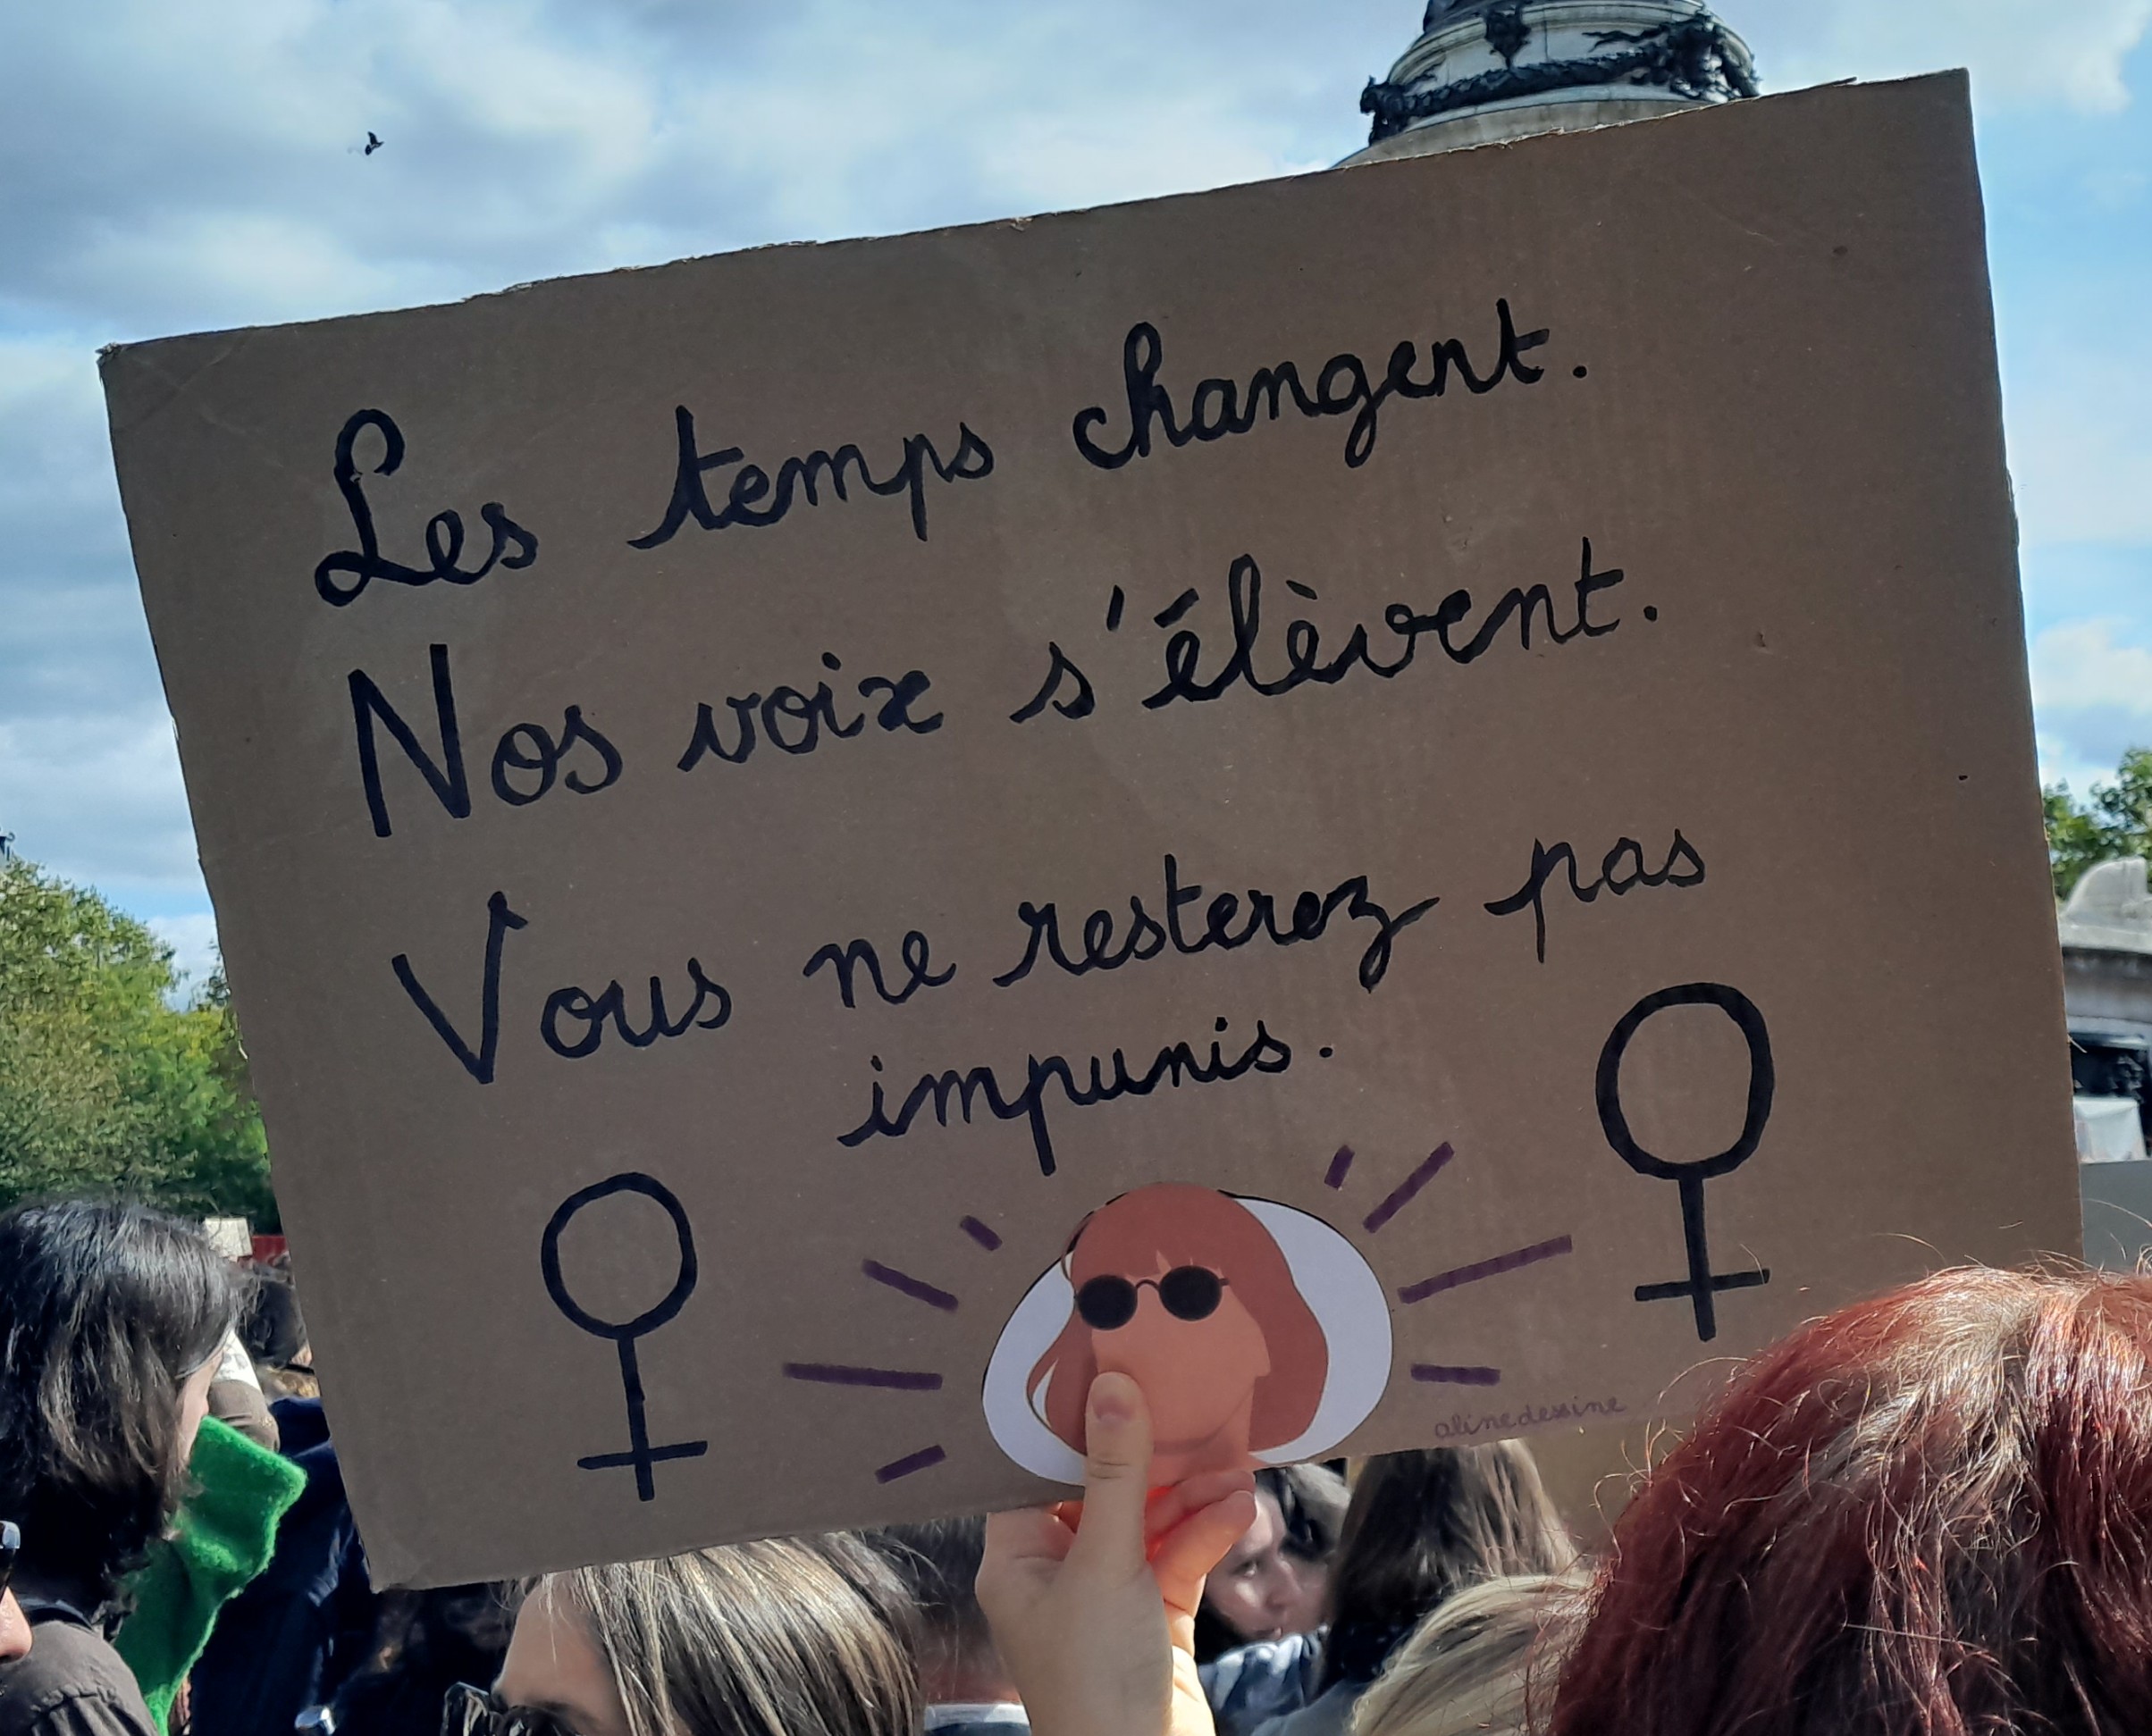 Les temps changent.
Nos voix s'élèvent.
Vous ne resterez pas
impunis.
alinedessine